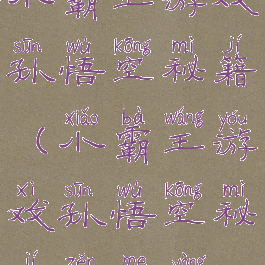 小霸王游戏
sūn wù kōng mì jí
孙悟空秘籍
xiǎo bà wáng yóu
(小霸王游
xì sūn wù kōng mì
戏孙悟空秘
jí zěn me yòng